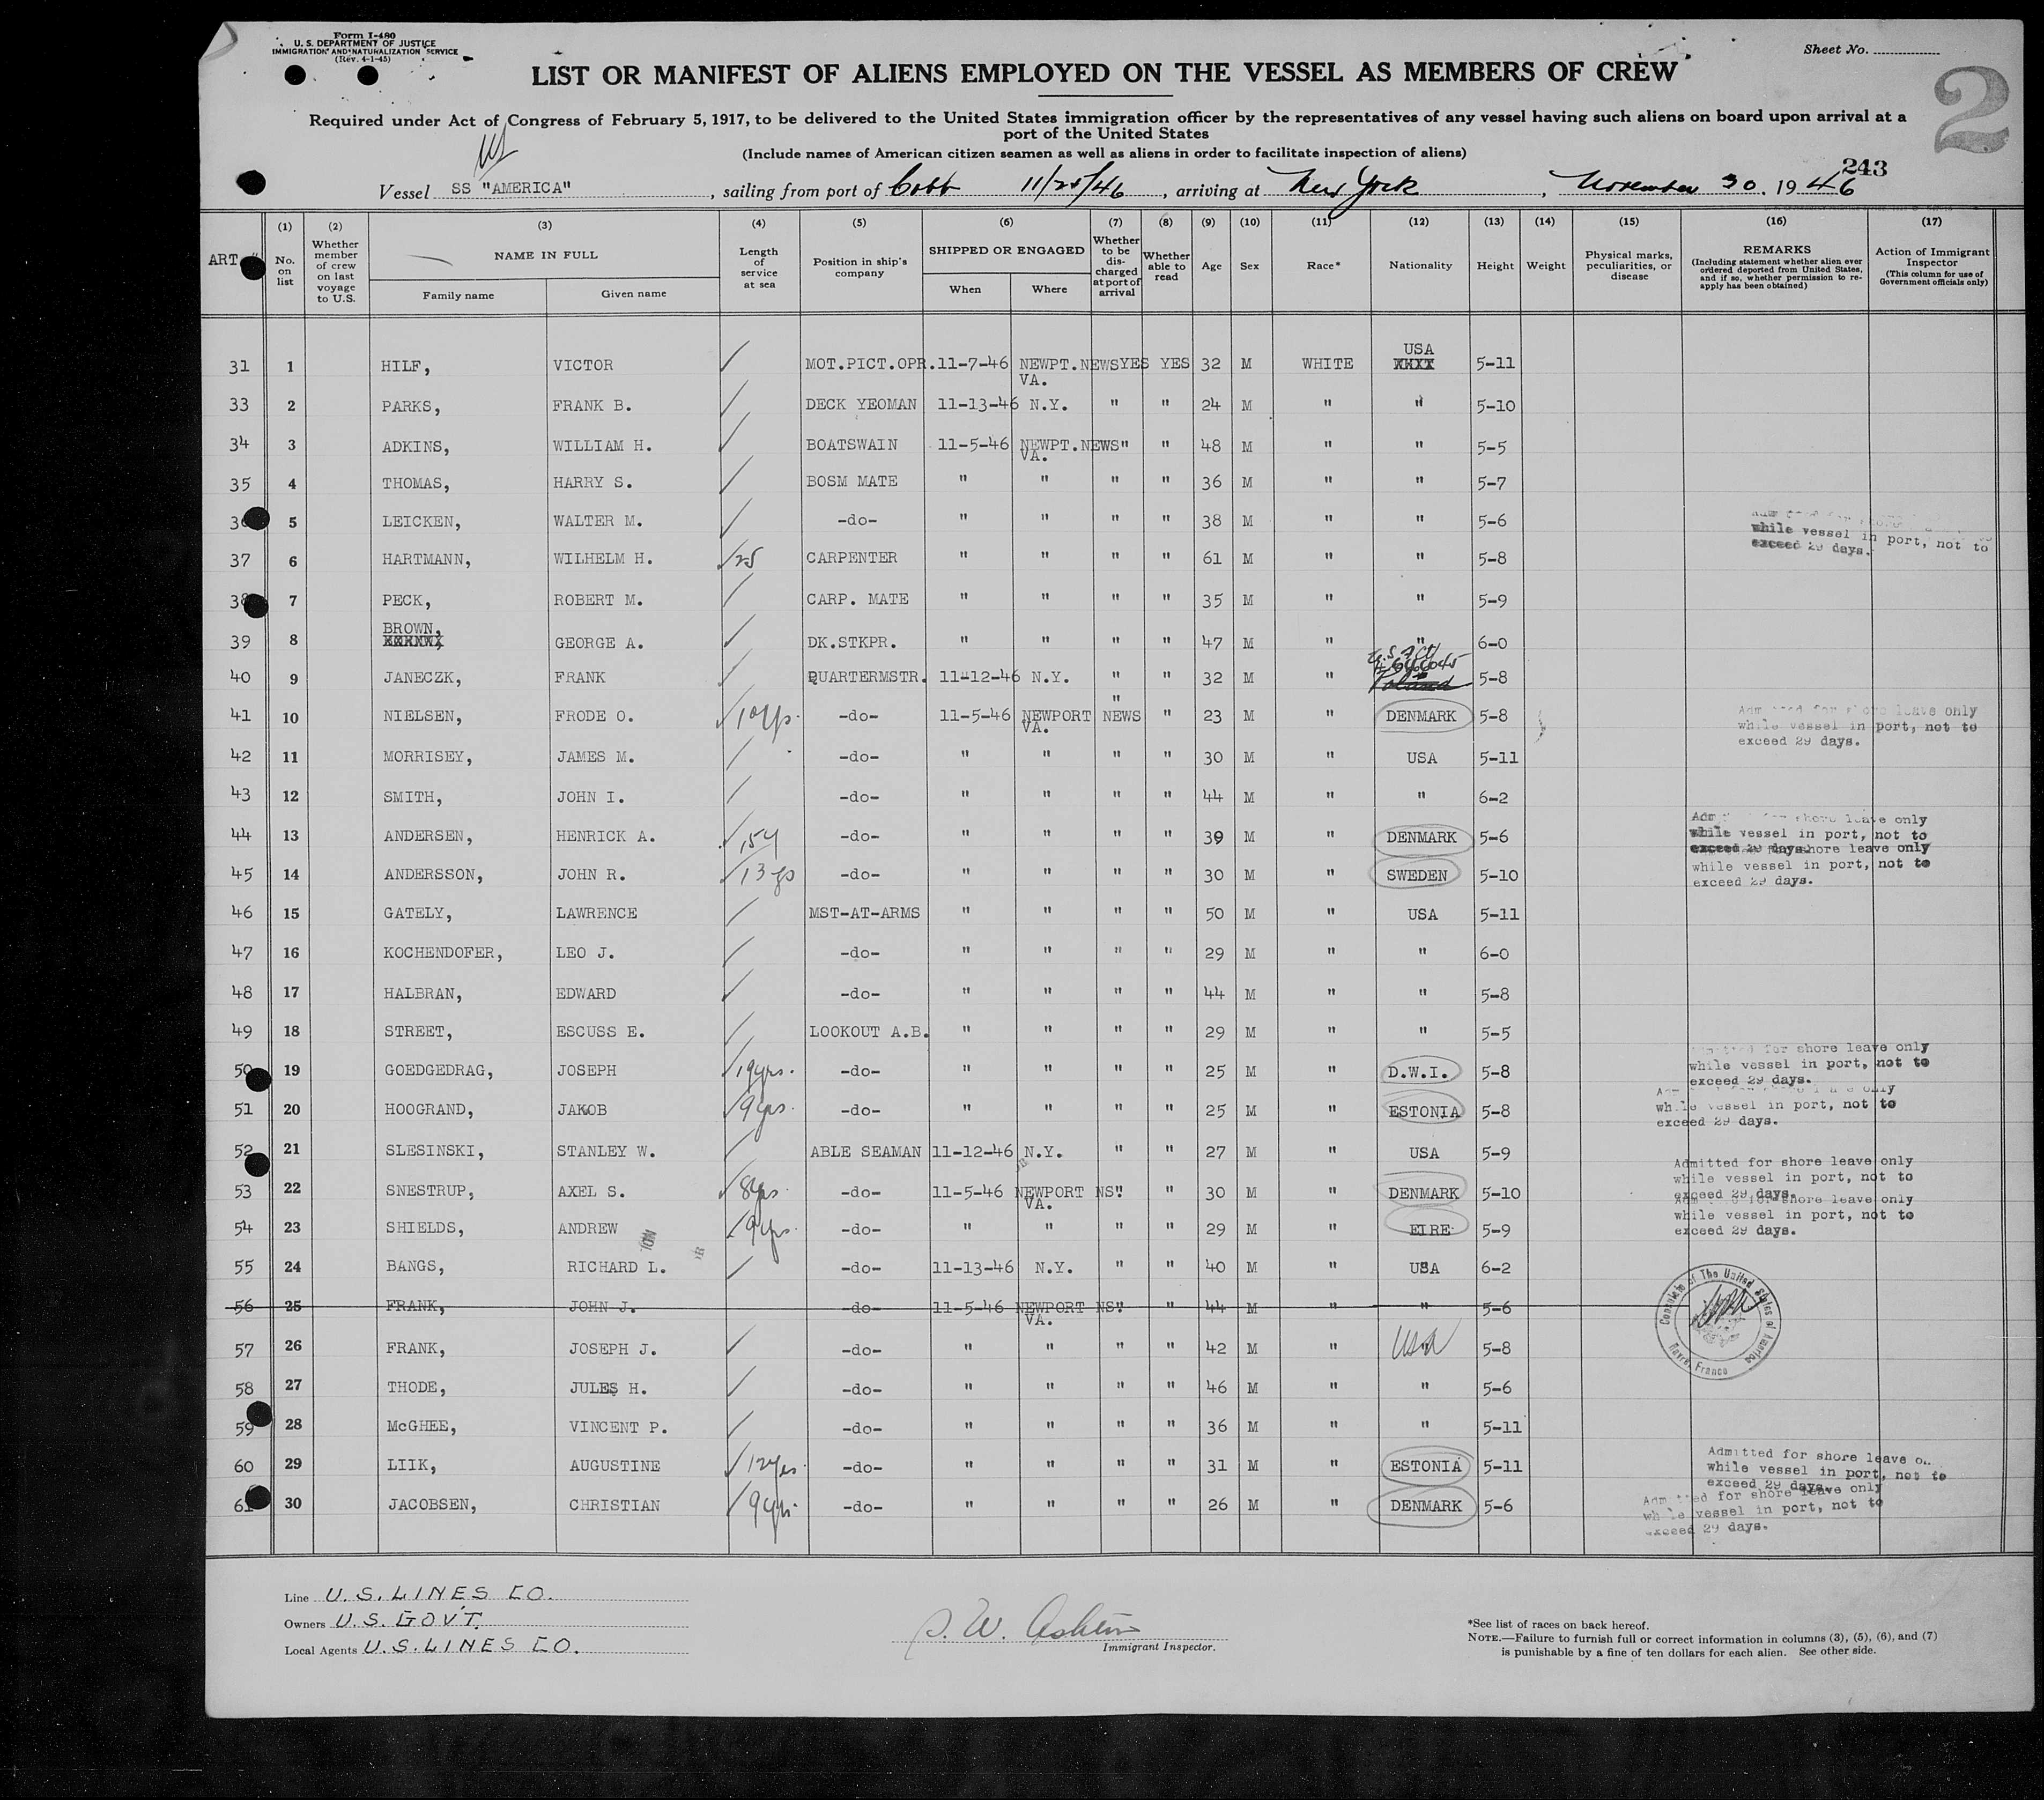 Form I-480
U. S. DEPARTMENT OF JUSTICE
IMMIGRATION AND NATURALIZATION SERVICE
(Rev. 4-1-45)
Sheet No.
LIST OR MANIFEST OF ALIENS EMPLOYED ON THE VESSEL AS MEMBERS OF CREW
2
Required under Act of Congress of February 5, 1917, to be delivered to the United States immigration officer by the representatives of any vessel having such aliens on board upon arrival at a
port of the United States
(Include names of American citizen seamen as well as aliens in order to facilitate inspection of aliens)
243
Vessel SS "AMERICA", sailing from port of Cobh 11/25/46, arriving at New York, November 30, 1946
(1) (2) (3) (4) (5) (6) (7) (8) (9) (10) (11) (12) (13) (14) (15) (16) (17)
ART No. on list Whether member of crew on last voyage to U.S. NAME IN FULL Family name Given name Length of service at sea Position in ship's company SHIPPED OR ENGAGED When Where Whether to be discharged at port of arrival Whether able to read Age Sex Race* Nationality Height Weight Physical marks, peculiarities, or disease REMARKS (Including statement whether alien ever ordered deported from United States, and if so, whether permission to reapply has been obtained) Action of Immigrant Inspector (This column for use of Government officials only)
31 1 HILF, VICTOR MOT.PICT.OPR. 11-7-46 NEWPT.NEWS VA. YES YES 32 M WHITE USA 5-11
33 2 PARKS, FRANK B. DECK YEOMAN 11-13-46 N.Y. " " 24 M " " 5-10
34 3 ADKINS, WILLIAM H. BOATSWAIN 11-5-46 NEWPT.NEWS VA. " " 48 M " " 5-5
35 4 THOMAS, HARRY S. BOSM MATE " " " " 36 M " " 5-7
36 5 LEICKEN, WALTER M. -do- " " " " 38 M " " 5-6
while vessel in port, not to
exceed 29 days.
37 6 HARTMANN, WILHELM H. 25 CARPENTER " " " " 61 M " " 5-8
38 7 PECK, ROBERT M. CARP. MATE " " " " 35 M " " 5-9
39 8 BROWN, GEORGE A. DK.STKPR. " " " " 47 M " " 6-0
40 9 JANECZK, FRANK QUARTERMSTR. 11-12-46 N.Y. " " 32 M " Poland 5-8
41 10 NIELSEN, FRODE O. 10 yrs. -do- 11-5-46 NEWPORT NEWS VA. " " 23 M " DENMARK 5-8
Admitted for shore leave only
while vessel in port, not to
exceed 29 days.
42 11 MORRISEY, JAMES M. -do- " " " " 30 M " USA 5-11
43 12 SMITH, JOHN I. -do- " " " " 44 M " " 6-2
44 13 ANDERSEN, HENRICK A. 15y -do- " " " " 39 M " DENMARK 5-6
Admitted for shore leave only
while vessel in port, not to
exceed 29 days.
45 14 ANDERSSON, JOHN R. 13 ys -do- " " " " 30 M " SWEDEN 5-10
shore leave only
while vessel in port, not to
exceed 29 days.
46 15 GATELY, LAWRENCE MST-AT-ARMS " " " " 50 M " USA 5-11
47 16 KOCHENDOFER, LEO J. -do- " " " " 29 M " " 6-0
48 17 HALBRAN, EDWARD -do- " " " " 44 M " " 5-8
49 18 STREET, ESCUSS E. LOOKOUT A.B. " " " " 29 M " " 5-5
50 19 GOEDGEDRAG, JOSEPH 19yrs. -do- " " " " 25 M " D.W.I. 5-8
Admitted for shore leave only
while vessel in port, not to
exceed 29 days.
51 20 HOOGRAND, JAKOB 9yrs. -do- " " " " 25 M " ESTONIA 5-8
while vessel in port, not to
exceed 29 days.
52 21 SLESINSKI, STANLEY W. ABLE SEAMAN 11-12-46 N.Y. " " 27 M " USA 5-9
53 22 SNESTRUP, AXEL S. 8yrs. -do- 11-5-46 NEWPORT NS. VA. " " 30 M " DENMARK 5-10
Admitted for shore leave only
while vessel in port, not to
exceed 29 days.
54 23 SHIELDS, ANDREW 9yrs. -do- " " " " 29 M " EIRE 5-9
shore leave only
while vessel in port, not to
exceed 29 days.
55 24 BANGS, RICHARD L. -do- 11-13-46 N.Y. " " 40 M " USA 6-2
56 25 FRANK, JOHN J. -do- 11-5-46 NEWPORT NS. VA. " " 44 M " " 5-6
Consulate of The United States of America
Havre, France
57 26 FRANK, JOSEPH J. -do- " " " " 42 M " USA 5-8
58 27 THODE, JULES H. -do- " " " " 46 M " " 5-6
59 28 McGHEE, VINCENT P. -do- " " " " 36 M " " 5-11
60 29 LIIK, AUGUSTINE 12yrs. -do- " " " " 31 M " ESTONIA 5-11
Admitted for shore leave
while vessel in port, not to
exceed 29 days.
61 30 JACOBSEN, CHRISTIAN 9yrs. -do- " " " " 26 M " DENMARK 5-6
Admitted for shore leave only
while vessel in port, not to
exceed 29 days.
Line U.S. LINES CO.
Owners U.S. GOV'T.
Local Agents U.S. LINES CO.
Immigrant Inspector.
*See list of races on back hereof.
NOTE.—Failure to furnish full or correct information in columns (3), (5), (6), and (7)
is punishable by a fine of ten dollars for each alien. See other side.